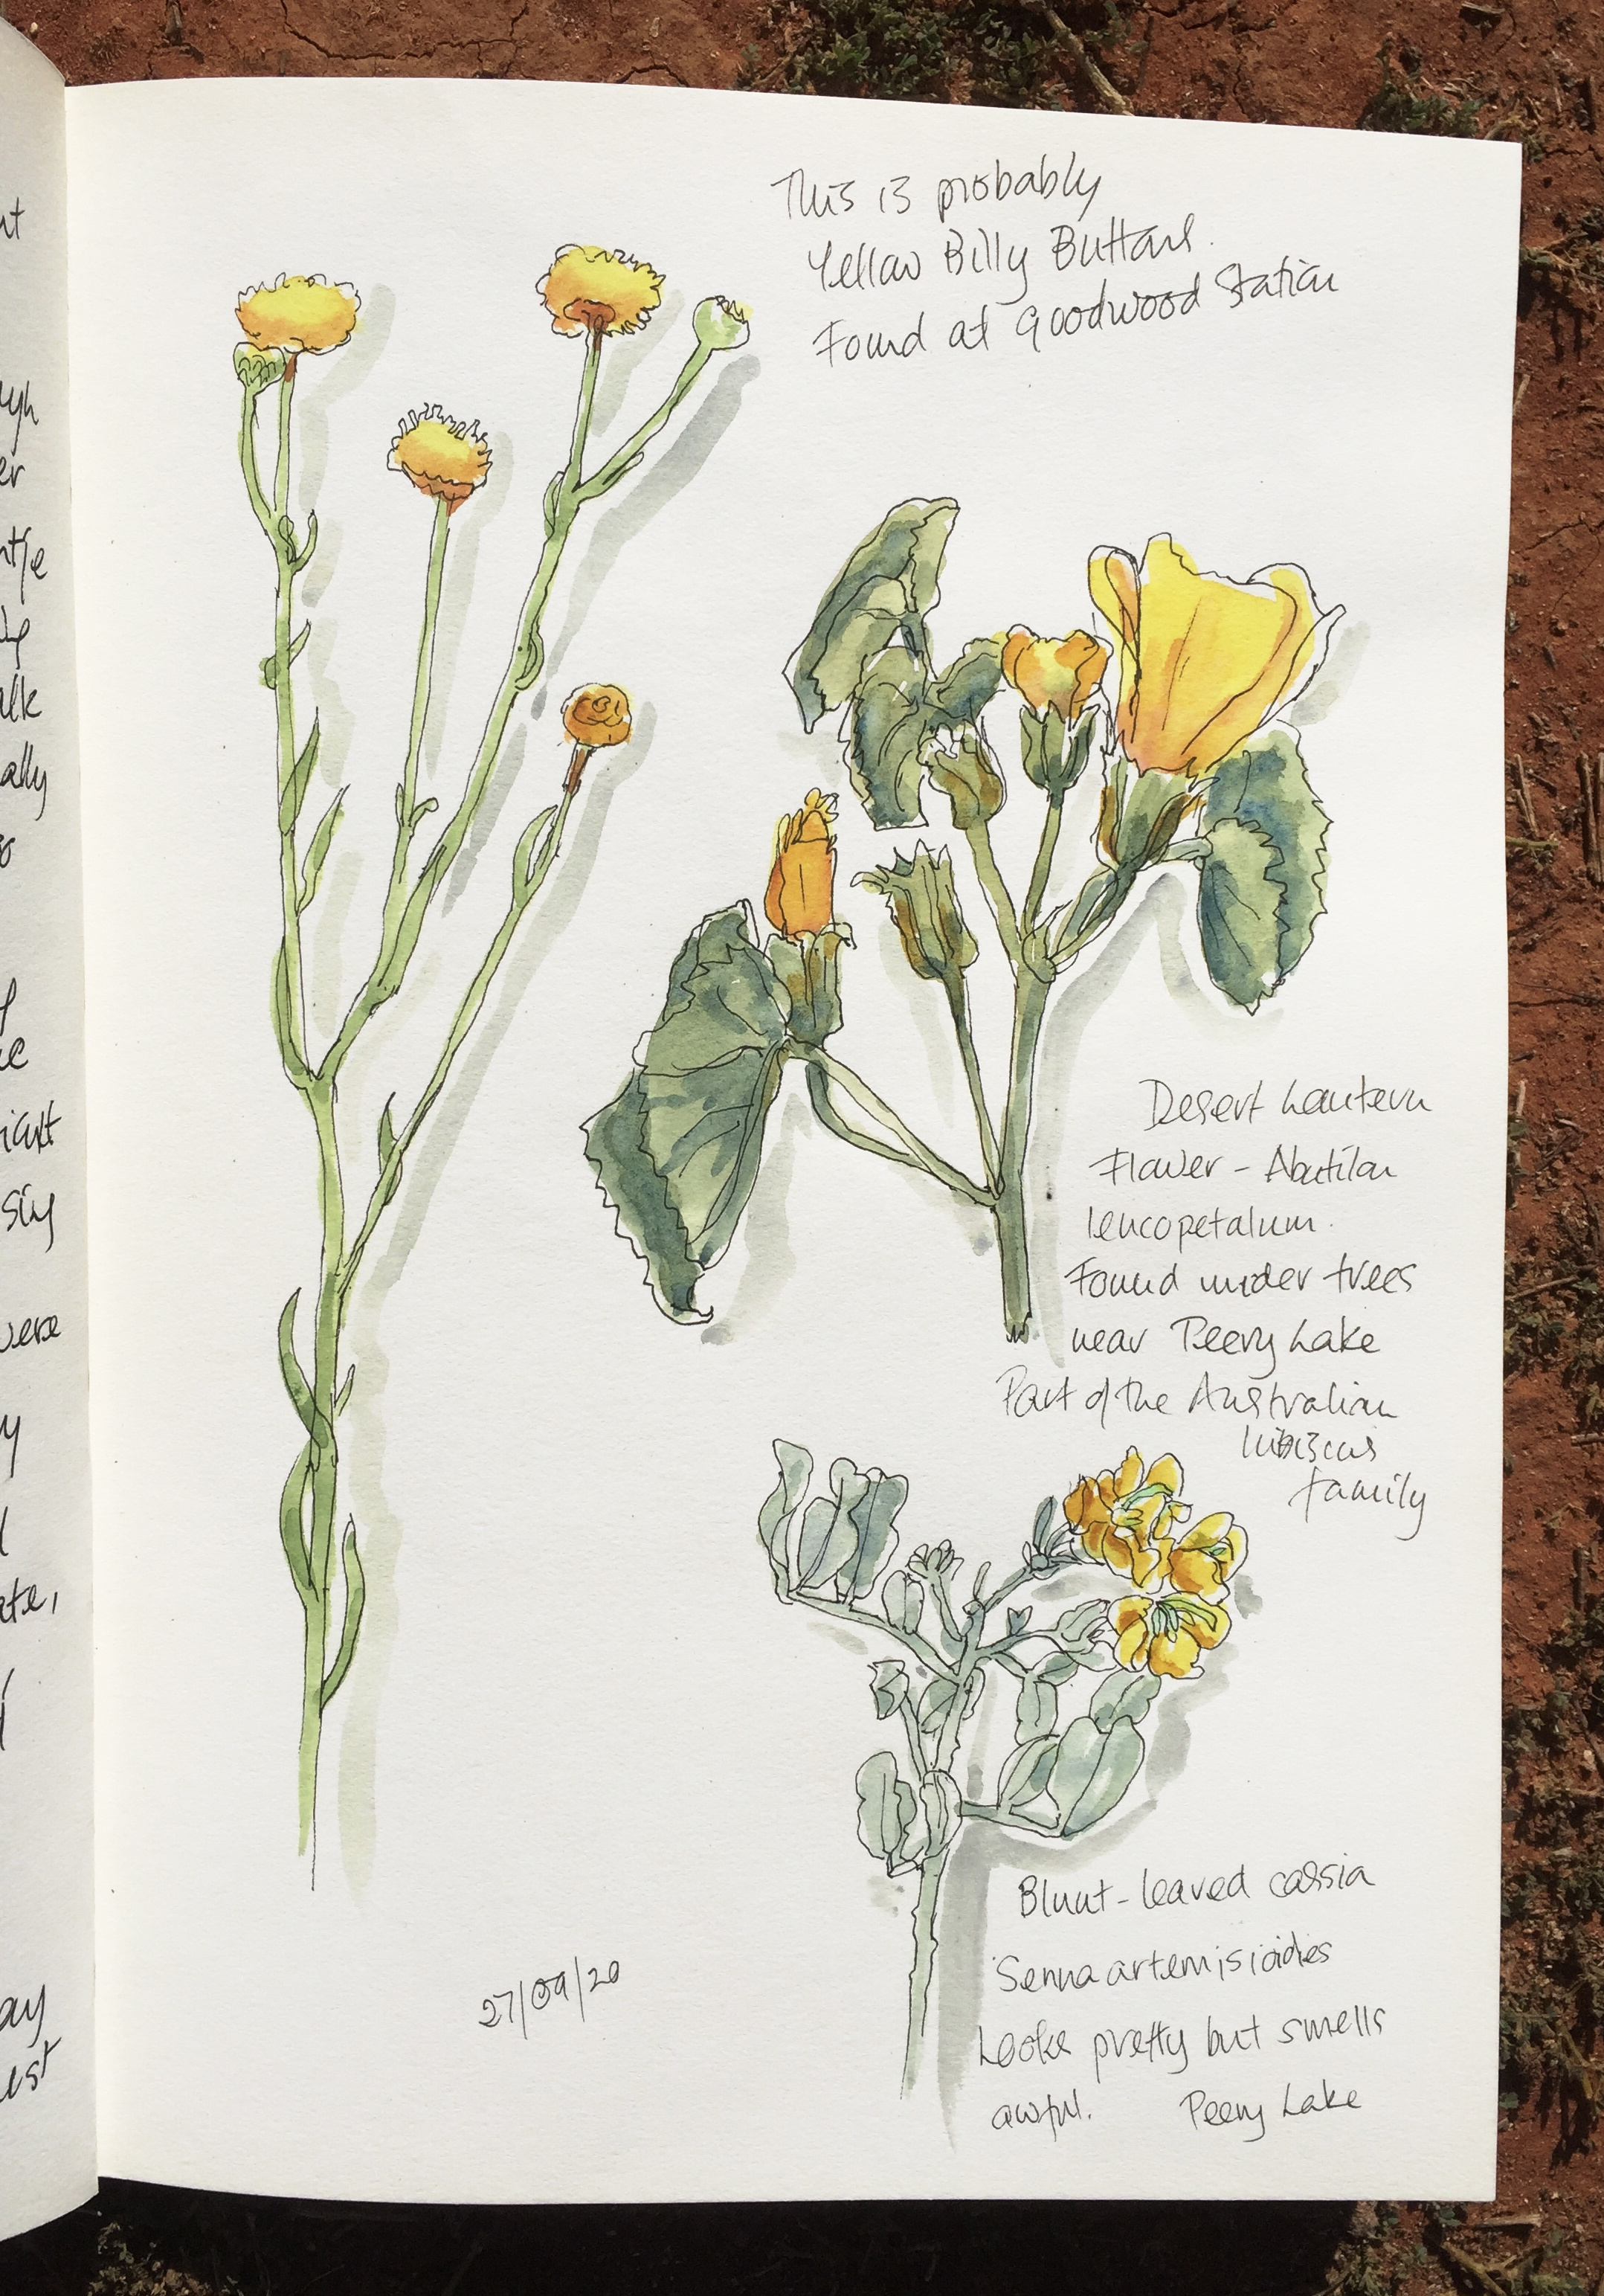 This is probably
Yellow Billy Buttons.
Found at Goodwood Station
Desert Lantern
Flower - Abutilon
leucopetalum.
Found under trees
near Peery Lake
Part of the Australian
hibiscus
family
Blunt-leaved cassia
Senna artemisioidies
Looks pretty but smells
awful. Peery Lake
27/09/20
ally
icult
were
ate,